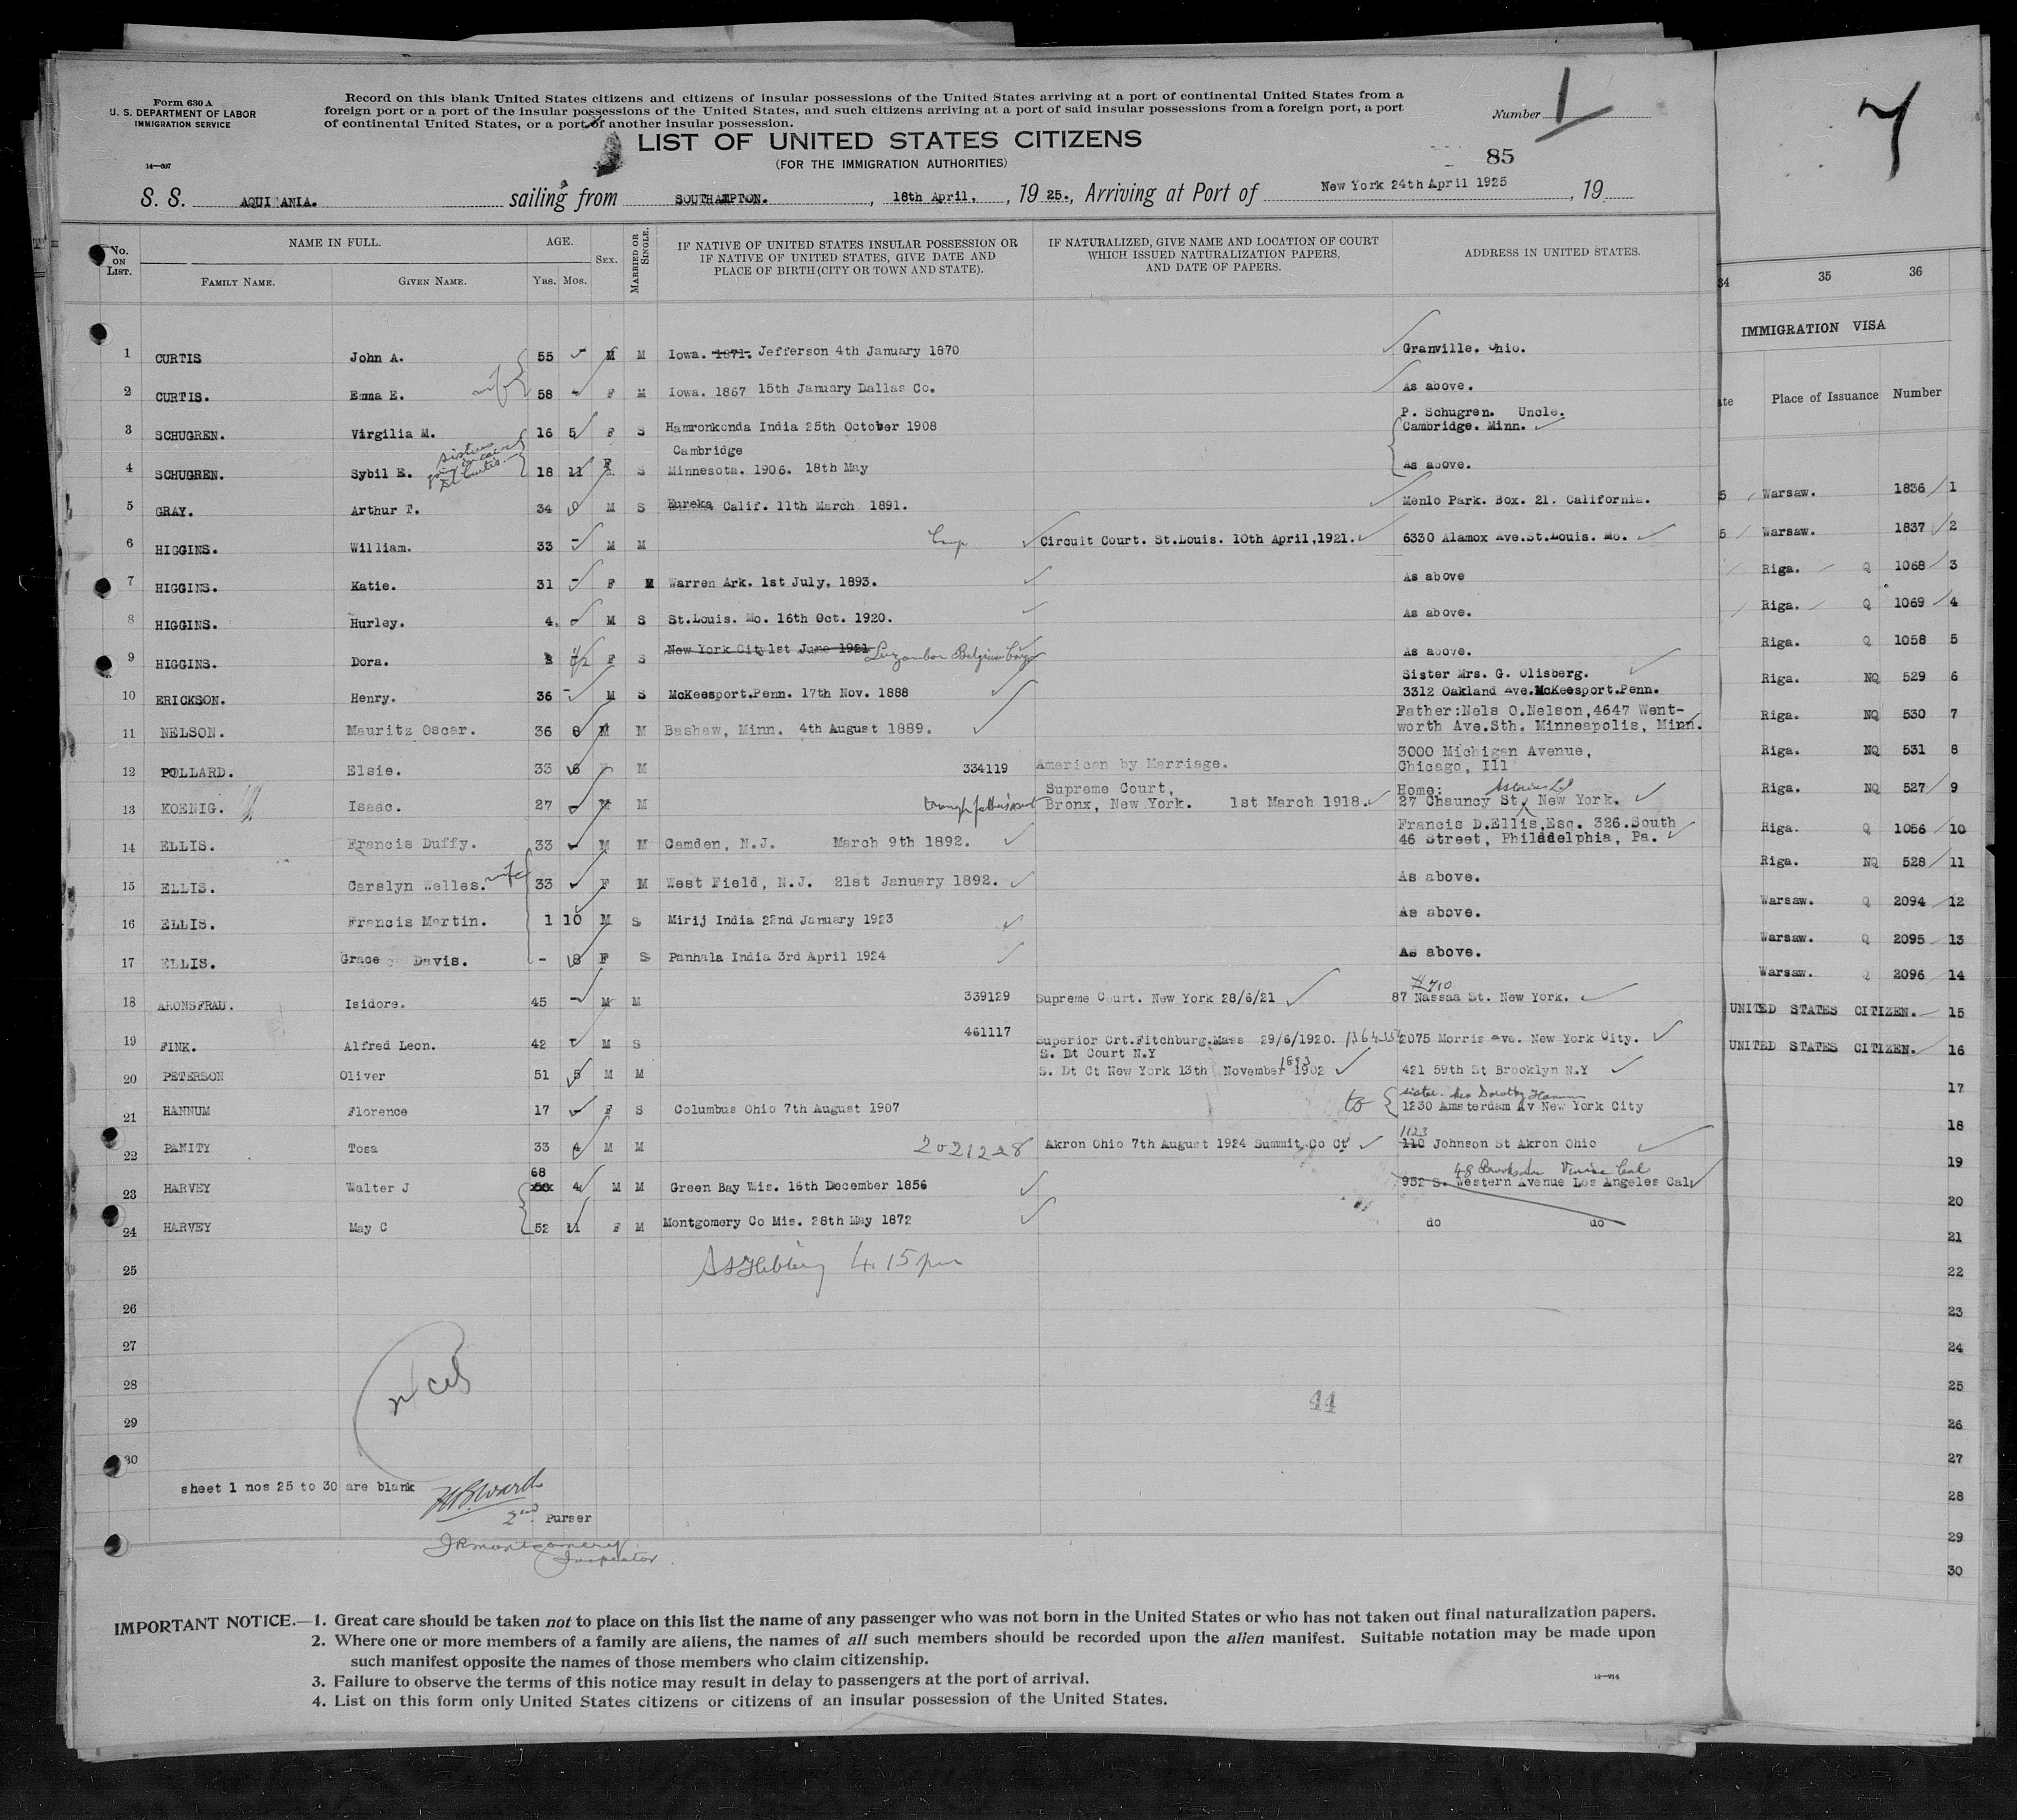 Form 630 A
U. S. DEPARTMENT OF LABOR
IMMIGRATION SERVICE
14—607
Record on this blank United States citizens and citizens of insular possessions of the United States arriving at a port of continental United States from a
foreign port or a port of the insular possessions of the United States, and such citizens arriving at a port of said insular possessions from a foreign port, a port
of continental United States, or a port of another insular possession.
Number 1
LIST OF UNITED STATES CITIZENS
(FOR THE IMMIGRATION AUTHORITIES)
85
S. S. AQUITANIA. sailing from SOUTHAMPTON. , 18th April, , 19 25., Arriving at Port of New York 24th April 1925 , 19
No. ON LIST. NAME IN FULL. AGE. SEX. MARRIED OR SINGLE. IF NATIVE OF UNITED STATES INSULAR POSSESSION OR IF NATIVE OF UNITED STATES, GIVE DATE AND PLACE OF BIRTH (CITY OR TOWN AND STATE). IF NATURALIZED, GIVE NAME AND LOCATION OF COURT WHICH ISSUED NATURALIZATION PAPERS, AND DATE OF PAPERS. ADDRESS IN UNITED STATES.
FAMILY NAME. GIVEN NAME. YRS. MOS.
1 CURTIS John A. 55 - M M Iowa. 1871. Jefferson 4th January 1870 Granville. Ohio.
2 CURTIS. Emma E. wife 58 - F M Iowa. 1867 15th January Dallas Co. As above.
3 SCHUGREN. Virgilia M. 16 5 F S Hamronkonda India 25th October 1908 P. Schugren. Uncle. Cambridge. Minn.
4 SCHUGREN. Sybil E. sisters 18 11 F S Cambridge Minnesota. 1906. 18th May As above.
5 GRAY. Arthur T. 34 0 M S Eureka Calif. 11th March 1891. Menlo Park. Box. 21. California.
6 HIGGINS. William. 33 - M M Circuit Court. St.Louis. 10th April,1921. 6330 Alamox Ave.St.Louis. Mo.
7 HIGGINS. Katie. 31 - F M Warren Ark. 1st July, 1893. As above
8 HIGGINS. Hurley. 4. - M S St.Louis. Mo. 16th Oct. 1920. As above.
9 HIGGINS. Dora. F S New York City 1st June 1921 Belgian Congo As above.
10 ERICKSON. Henry. 36 - M S McKeesport.Penn. 17th Nov. 1888 Sister Mrs. G. Olisberg. 3312 Oakland Ave.McKeesport.Penn.
11 NELSON. Mauritz Oscar. 36 8 M M Bashaw, Minn. 4th August 1889. Father:Nels O.Nelson,4647 Went-worth Ave.Sth. Minneapolis, Minn.
12 POLLARD. Elsie. 33 6 F M 334119 American by Marriage. 3000 Michigan Avenue, Chicago, Ill
13 KOENIG. Isaac. 27 - M M Supreme Court, Bronx, New York. 1st March 1918. Home: 27 Chauncy St. New York.
14 ELLIS. Francis Duffy. 33 - M M Camden, N.J. March 9th 1892. Francis D.Ellis,Esq. 326.South 46 Street, Philadelphia, Pa.
15 ELLIS. Carslyn Welles. wife 33 - F M West Field, N.J. 21st January 1892. As above.
16 ELLIS. Francis Martin. 1 10 M S Mirij India 22nd January 1923 As above.
17 ELLIS. Grace Davis. - 8 F S Panhala India 3rd April 1924 As above.
18 ARONSFRAU. Isidore. 45 - M M 339129 Supreme Court. New York 28/6/21 #710 87 Nassaa St. New York.
19 FINK. Alfred Leon. 42 - M S 461117 Superior Crt.Fitchburg.Mass 29/6/1920. 2075 Morris Ave. New York City.
20 PETERSON Oliver 51 5 M M S. Dt Court N.Y S. Dt Ct New York 13th November 1902 1893 421 59th St Brooklyn N.Y
21 HANNUM Florence 17 - F S Columbus Ohio 7th August 1907 to sister. Dorothy Hannum 1230 Amsterdam Av New York City
22 PANITY Tosa 33 4 M M 2021228 Akron Ohio 7th August 1924 Summit Co Ct 1123 110 Johnson St Akron Ohio
23 HARVEY Walter J 68 4 M M Green Bay Wis. 16th December 1856 952 S. Western Avenue Los Angeles Cal.
24 HARVEY May C 52 11 F M Montgomery Co Mis. 28th May 1872 do do
25 4.15 pm
26
27
28
29 44
30
sheet 1 nos 25 to 30 are blank
2nd Purser
JRMontgomery
Inspector.
IMPORTANT NOTICE.—1. Great care should be taken not to place on this list the name of any passenger who was not born in the United States or who has not taken out final naturalization papers.
2. Where one or more members of a family are aliens, the names of all such members should be recorded upon the alien manifest. Suitable notation may be made upon
such manifest opposite the names of those members who claim citizenship.
3. Failure to observe the terms of this notice may result in delay to passengers at the port of arrival.
4. List on this form only United States citizens or citizens of an insular possession of the United States.
14—214
7
34 35 36
IMMIGRATION VISA
Place of Issuance Number
5 Warsaw. 1836 1
5 Warsaw. 1837 2
Riga. Q 1068 3
Riga. Q 1069 4
Riga. Q 1058 5
Riga. NQ 529 6
Riga. NQ 530 7
Riga. NQ 531 8
Riga. NQ 527 9
Riga. Q 1056 10
Riga. NQ 528 11
Warsaw. Q 2094 12
Warsaw. Q 2095 13
Warsaw. Q 2096 14
UNITED STATES CITIZEN. 15
UNITED STATES CITIZEN. 16
17
18
19
20
21
22
23
24
25
26
27
28
29
30